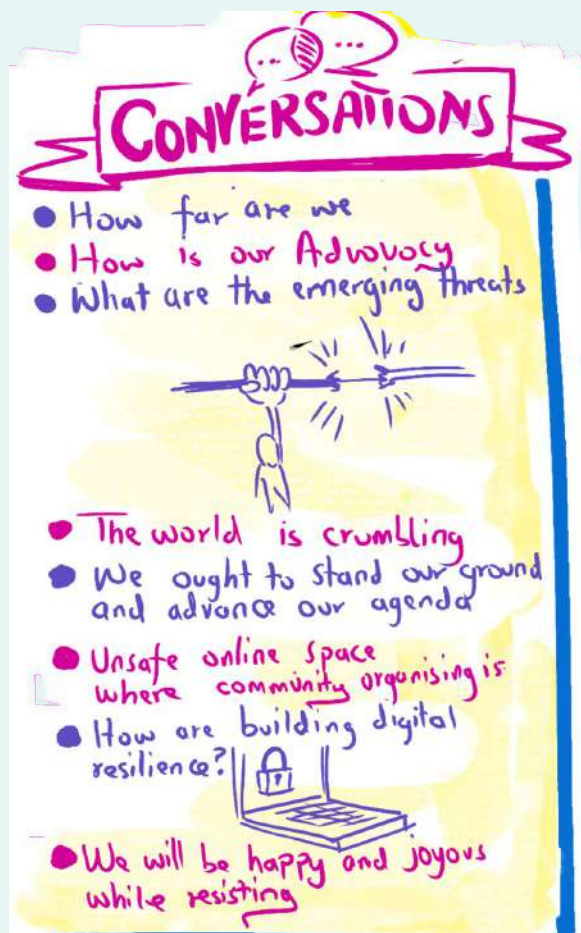 CONVERSATIONS
How far are we
How is our Advovocy
What are the emerging threats
The world is crumbling
We ought to stand our ground
and advance our agenda
Unsafe online space
where community organising is
How are building digital
resilience?
We will be happy and joyous
while resisting